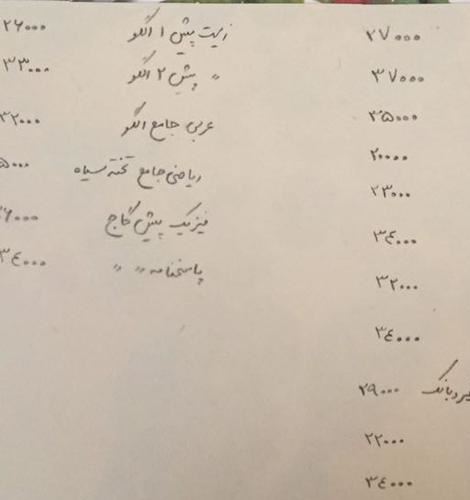 ۲۷۰۰۰
۳۷۰۰۰
۳۵۰۰۰
۲۰۰۰۰
۲۳۰۰۰
۳۴۰۰۰
۳۲۰۰۰
۳۴۰۰۰
۲۹۰۰۰
۲۲۰۰۰
۳۴۰۰۰
زیست پیش ۱ الگو ۲۶۰۰۰
" پیش ۲ الگو ۳۳۰۰۰
عربی جامع الگو ۳۲۰۰۰
ریاضی جامع تخته سیاه ۵۰۰۰
فیزیک پیش گاج ۶۰۰۰
پاسخنامه " " ۳۴۰۰۰